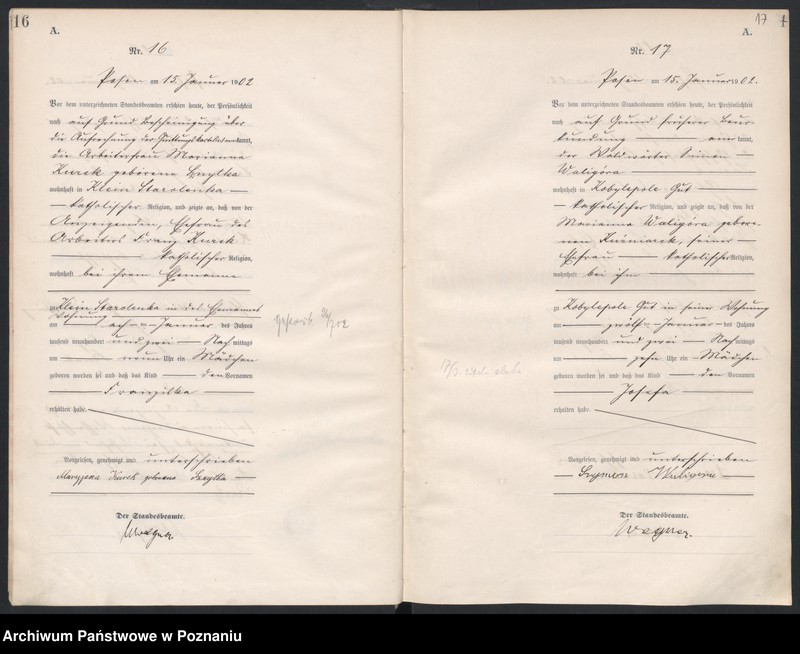 16
A.
Nr. 16
Posen am 15. Januar 1902
Vor dem unterzeichneten Standesbeamten erschien heute, der Persönlichkeit
nach auf Grund Bescheinigung über
die Aufrechnung der Quittungskarte bekannt,
die Arbeiterfrau Marianna
Kurek geborene
wohnhaft in Klein Starolenka
katholischer Religion, und zeigte an, daß von der
Anzeigenden, Ehefrau des
Arbeiters Franz Kurek
katholischer Religion,
wohnhaft bei ihrem Ehemanne
zu Klein Starolenka in des Ehemannes
Wohnung
am acht Januar des Jahres
tausend neunhundert und zwei Nachmittags
um neun Uhr ein Mädchen
geboren worden sei und daß das Kind den Vornamen
Franziska
erhalten habe.
Vorgelesen, genehmigt und unterschrieben
Maryjena Kurek
Der Standesbeamte.
Wegner
17
A.
Nr. 17
Posen am 15. Januar 1902.
Vor dem unterzeichneten Standesbeamten erschien heute, der Persönlichkeit
nach auf Grund früherer Beur-
kundung anerkannt,
der Waldwärter Simon
Waligóra
wohnhaft in Kobylepole Gut
katholischer Religion, und zeigte an, daß von der
Marianna Waligóra gebore-
nen Kuźniarek, seiner
Ehefrau katholischer Religion,
wohnhaft bei ihm
zu Kobylepole Gut in seiner Wohnung
am zwölf Januar des Jahres
tausend neunhundert und zwei Nachmittags
um zehn Uhr ein Mädchen
geboren worden sei und daß das Kind den Vornamen
Josefa
erhalten habe.
Vorgelesen, genehmigt und unterschrieben
Szymon Waligóra
Der Standesbeamte.
Wegner.
Archiwum Państwowe w Poznaniu